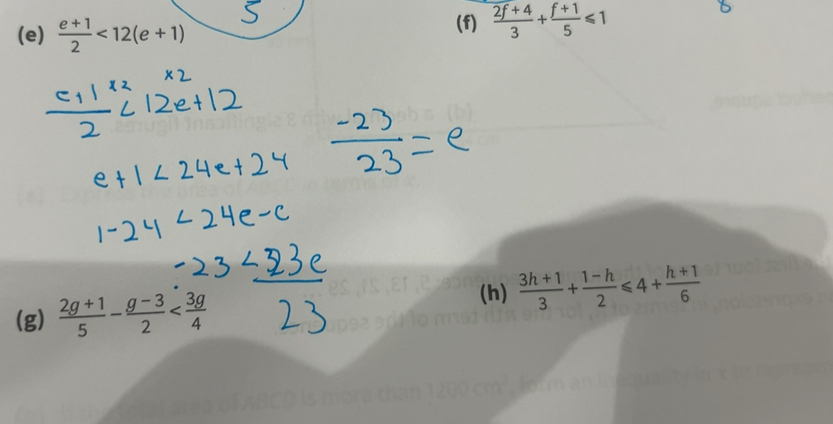 5
8
(e) e+1/2 < 12(e + 1)
(f) 2f+4/3 + f+1/5 ⩽ 1
×2 ×2
e+1/2 < 12e+12
e+1 < 24e+24
1-24 < 24e-e
-23 < 23e
23
-23/23 = e
(g) 2g+1/5 − g−3/2 < 3g/4
(h) 3h+1/3 + 1−h/2 ⩽ 4 + h+1/6